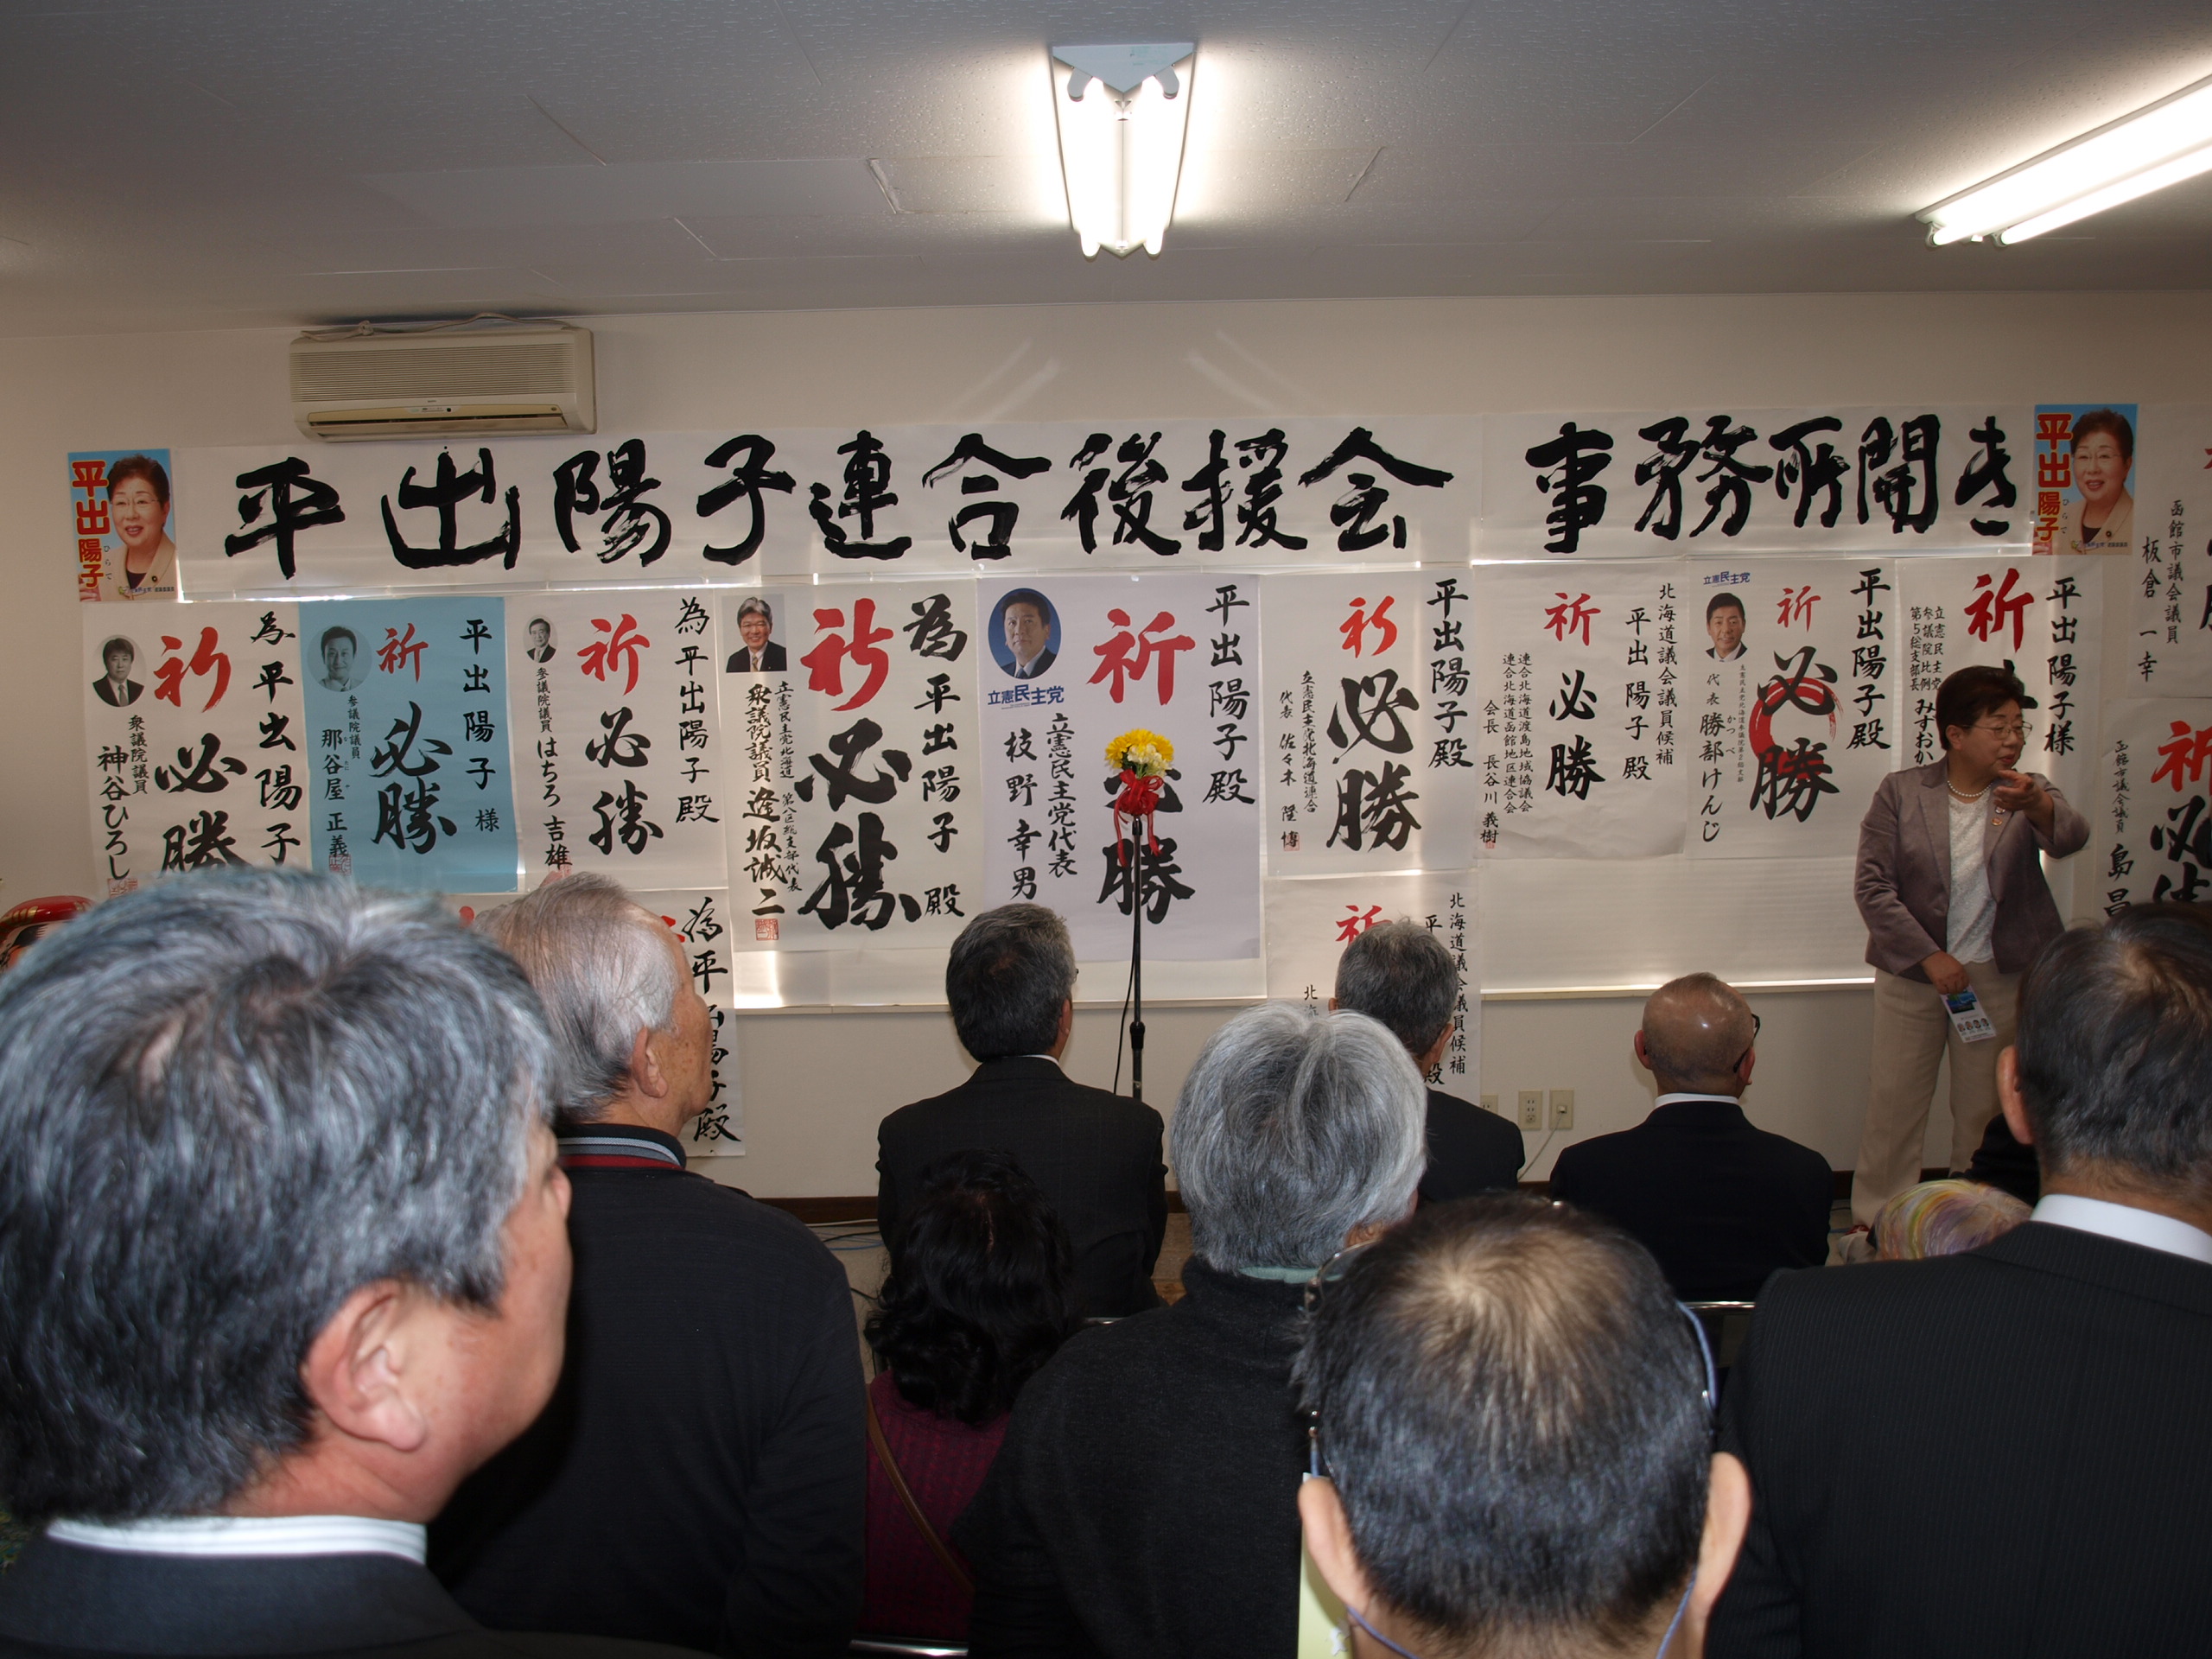 平出陽子連合後援会 事務所開き
平出
陽子
ひらで
平出
陽子
ひらで
為平出陽子
祈
必勝
衆議院議員
神谷ひろし
平出陽子様
祈
必勝
参議院議員
那谷屋正義
為平出陽子殿
祈
必勝
参議院議員
はちろ吉雄
為平出陽子殿
祈
必勝
立憲民主党北海道第八区総支部代表
衆議院議員逢坂誠二
平出陽子殿
祈
勝
立憲民主党
立憲民主党代表
枝野幸男
平出陽子殿
祈
必勝
立憲民主党北海道連合
代表 佐々木隆博
北海道議会議員候補
平出陽子殿
祈
必勝
連合北海道渡島地域協議会
連合北海道函館地区連合会
会長 長谷川義樹
平出陽子殿
祈
必勝
立憲民主党
代表 勝部けんじ
かつべ
平出陽子様
祈
立憲民主党
参議院比例
第5総支部長
みずおか
函館市議会議員
板倉一幸
祈
必勝
函館市議会議員
島昌
為平出陽子殿
北海道議会議員候補
平
殿
祈
北海